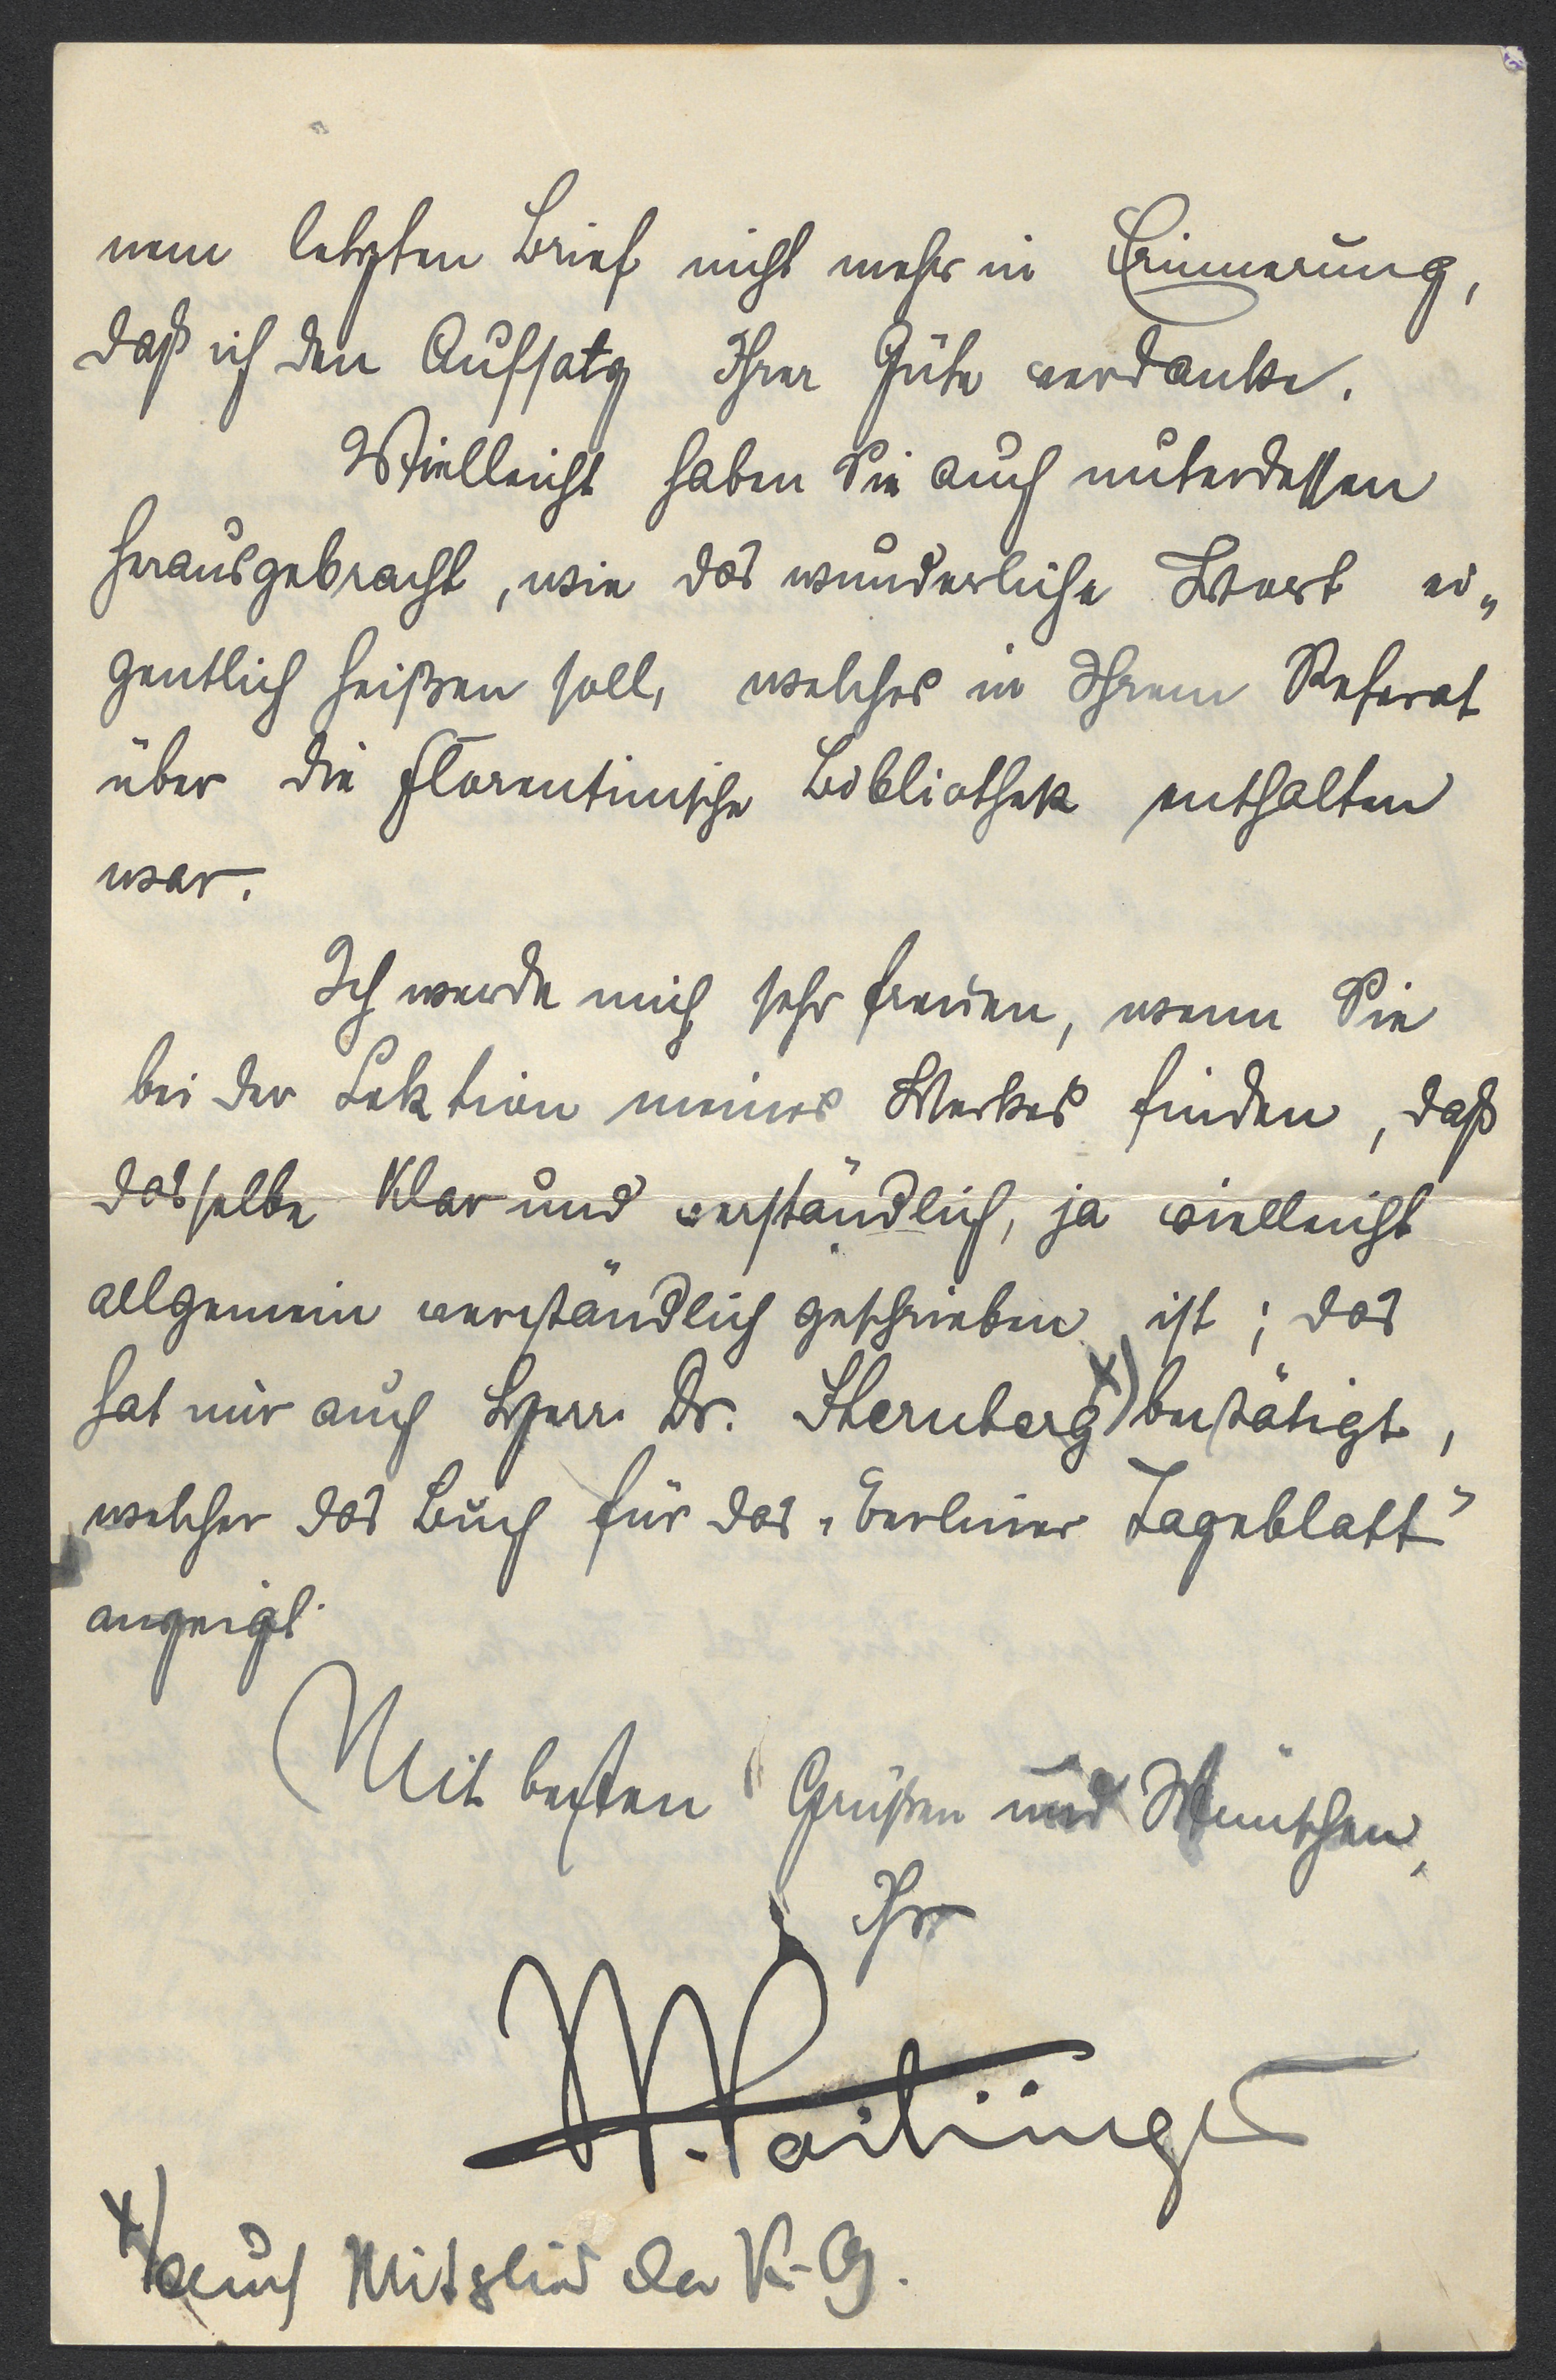 nem letzten Brief nicht mehr in Erinnerung,
daß ich den Aufsatz Ihrer Güte verdanke.
Vielleicht haben Sie auch unterdessen
herausgebracht, wie das wunderliche Wort ei„
gentlich heißen soll, welches in Ihrem Referat
über die Florentinische Bibliothek enthalten
war.
Ich werde mich sehr freuen, wenn Sie
bei der Lektion meines Werkes finden, daß
dasselbe klar und verständlich, ja vielleicht
allgemein verständlich geschrieben ist; das
hat mir auch Herr Dr. Sternberg x) bestätigt,
welcher das Buch für das „Berliner Tageblatt"
anzeigt.
Mit besten Grüßen und Wünschen,
Ihr
H. Vaihinger
x) auch Mitglied der K-G.